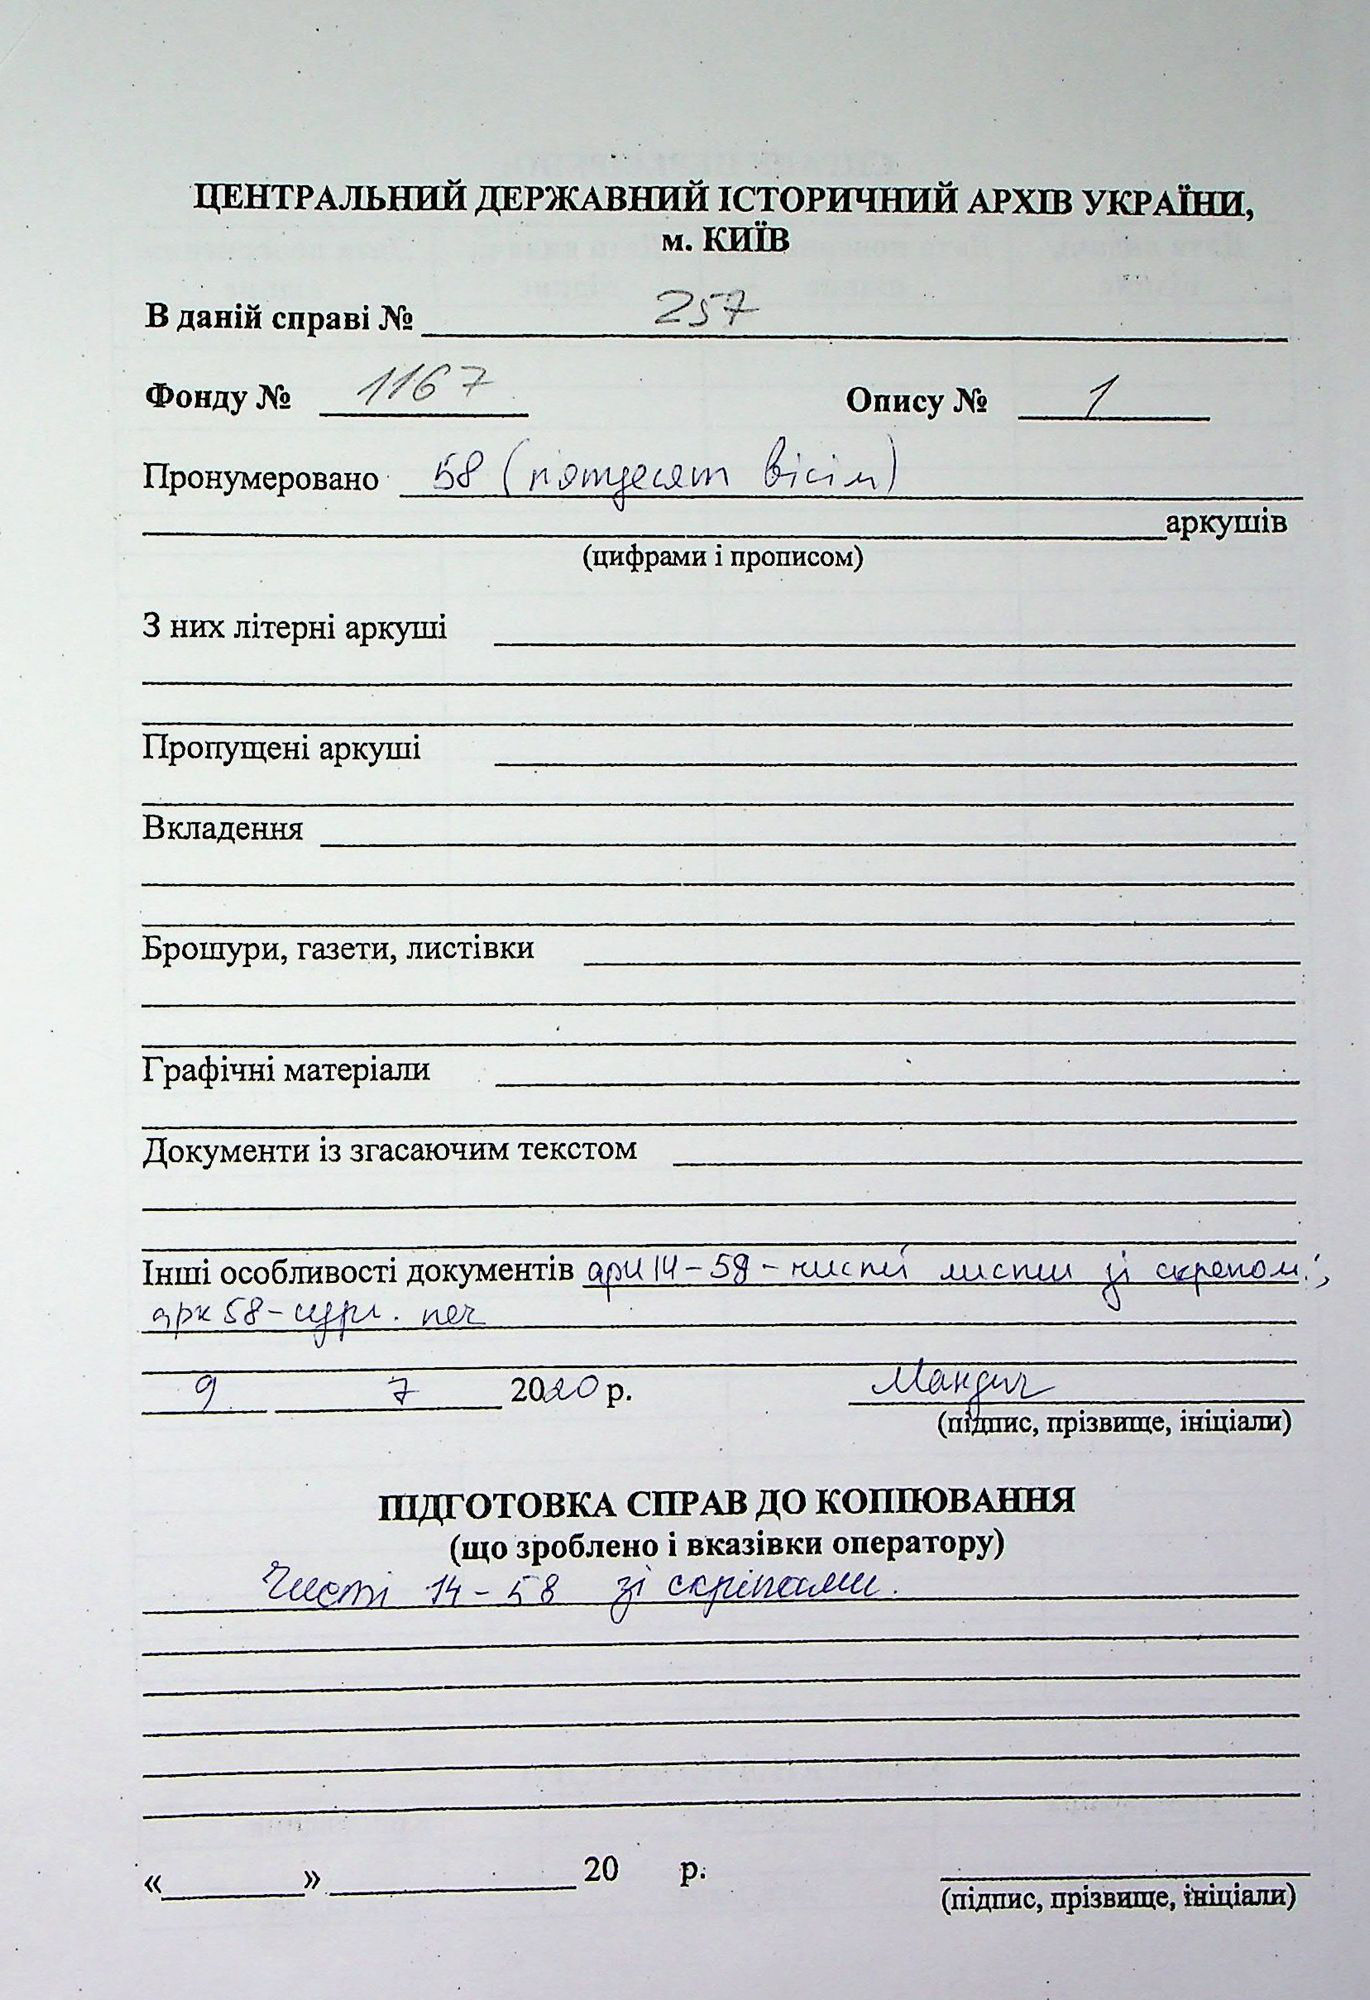 ЦЕНТРАЛЬНИЙ ДЕРЖАВНИЙ ІСТОРИЧНИЙ АРХІВ УКРАЇНИ,
м. КИЇВ
В даній справі № 257
Фонду № 1167 Опису № 1
Пронумеровано 58 (пятдесят вісім)
аркушів
(цифрами і прописом)
З них літерні аркуші
Пропущені аркуші
Вкладення
Брошури, газети, листівки
Графічні матеріали
Документи із згасаючим текстом
Інші особливості документів арк 14-58 - чисті листи зі скрепом.;
арк 58 - сург. печ
9 7 2020 р. Мандич
(підпис, прізвище, ініціали)
ПІДГОТОВКА СПРАВ ДО КОПІЮВАННЯ
(що зроблено і вказівки оператору)
Чисті 14-58 зі скріпами.
«    »    20    р.
(підпис, прізвище, ініціали)